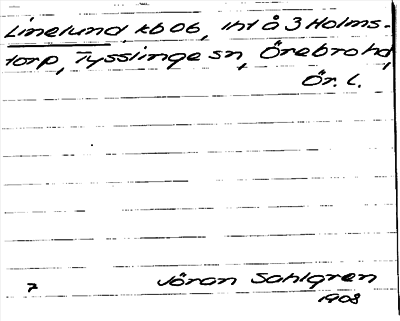 Linelund, kb 06, int å 3 Holms-
torp, Tysslinge sn, Örebro hd,
Ör. l.
7 Jöran Sahlgren
1908